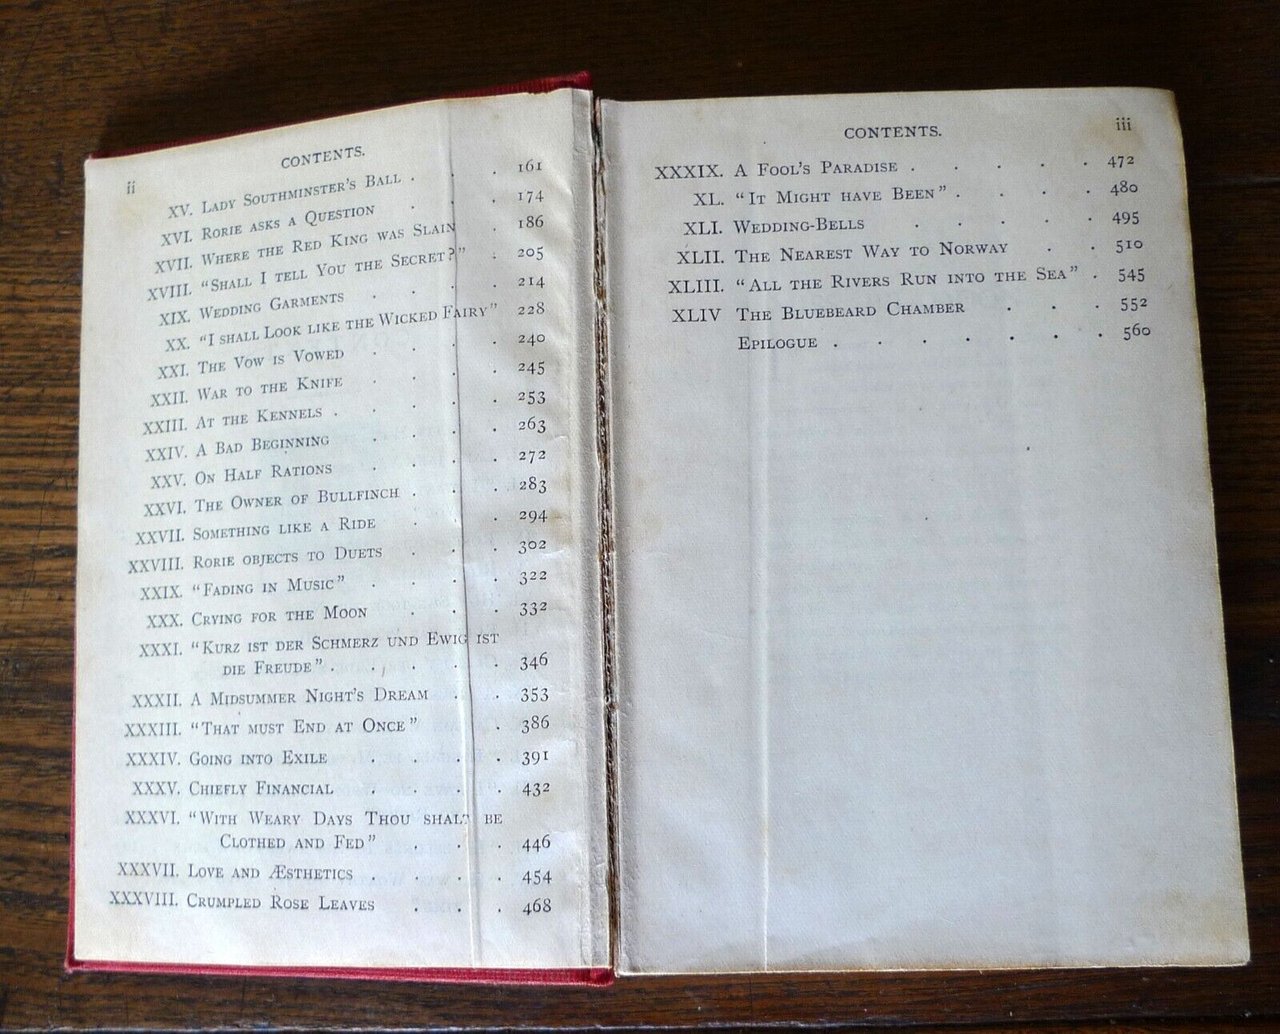 ii
CONTENTS.
XV. LADY SOUTHMINSTER'S BALL . . . 161
XVI. RORIE ASKS A QUESTION . . . 174
XVII. WHERE THE RED KING WAS SLAIN . 186
XVIII. "SHALL I TELL YOU THE SECRET?" . 205
XIX. WEDDING GARMENTS . . . . 214
XX. "I SHALL LOOK LIKE THE WICKED FAIRY" 228
XXI. THE VOW IS VOWED . . . . 240
XXII. WAR TO THE KNIFE . . . . 245
XXIII. AT THE KENNELS . . . . . 253
XXIV. A BAD BEGINNING . . . . 263
XXV. ON HALF RATIONS . . . . 272
XXVI. THE OWNER OF BULLFINCH . . . 283
XXVII. SOMETHING LIKE A RIDE . . . 294
XXVIII. RORIE OBJECTS TO DUETS . . . 302
XXIX. "FADING IN MUSIC" . . . . 322
XXX. CRYING FOR THE MOON . . . 332
XXXI. "KURZ IST DER SCHMERZ UND EWIG IST
DIE FREUDE" . . . . . 346
XXXII. A MIDSUMMER NIGHT'S DREAM . . 353
XXXIII. "THAT MUST END AT ONCE" . . 386
XXXIV. GOING INTO EXILE . . . . 391
XXXV. CHIEFLY FINANCIAL . . . . 432
XXXVI. "WITH WEARY DAYS THOU SHALT BE
CLOTHED AND FED" . . . 446
XXXVII. LOVE AND ÆSTHETICS . . . . 454
XXXVIII. CRUMPLED ROSE LEAVES . . . 468
CONTENTS.
iii
XXXIX. A FOOL'S PARADISE . . . . . 472
XL. "IT MIGHT HAVE BEEN" . . . . 480
XLI. WEDDING-BELLS . . . . . 495
XLII. THE NEAREST WAY TO NORWAY . . 510
XLIII. "ALL THE RIVERS RUN INTO THE SEA" . 545
XLIV THE BLUEBEARD CHAMBER . . . 552
EPILOGUE . . . . . . . 560